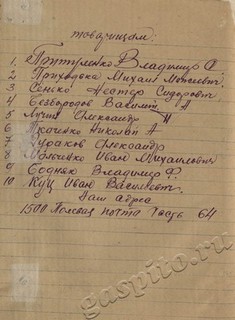 товарищам:
1. Владимир Ф
2 Приходько Михаил Моисеевич.
3 Сенько Нестор Сидорович
4 Безбородов Василий А
5 Лучин Александр И
6 Ткаченко Николай А
7 Дураков Александр
8 Иван Михайлович
9 Бодняк Владимир Ф.
10 Куц Иван Васильевич.
Наш адрес
1500 Полевая почта часть 64
gaspito.ru